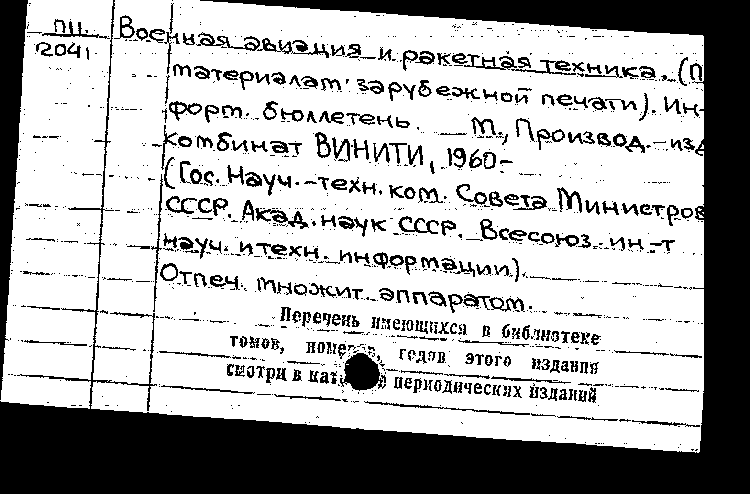 ПII. Военная авиация и ракетная техника. (П
12041 материалам зарубежной печати). Ин-
форм. бюллетень. М., Производ.-изд
комбинат ВИНИТИ, 1960-
(Гос. Науч.-техн. ком. Совета Министров
СССР. Акад. наук СССР. Всесоюз. ин-т
науч. и техн. информации).
Отпеч. множит. аппаратом.
Перечень имеющихся в библиотеке
томов, номеров, годов этого издания
смотри в кат периодических изданий